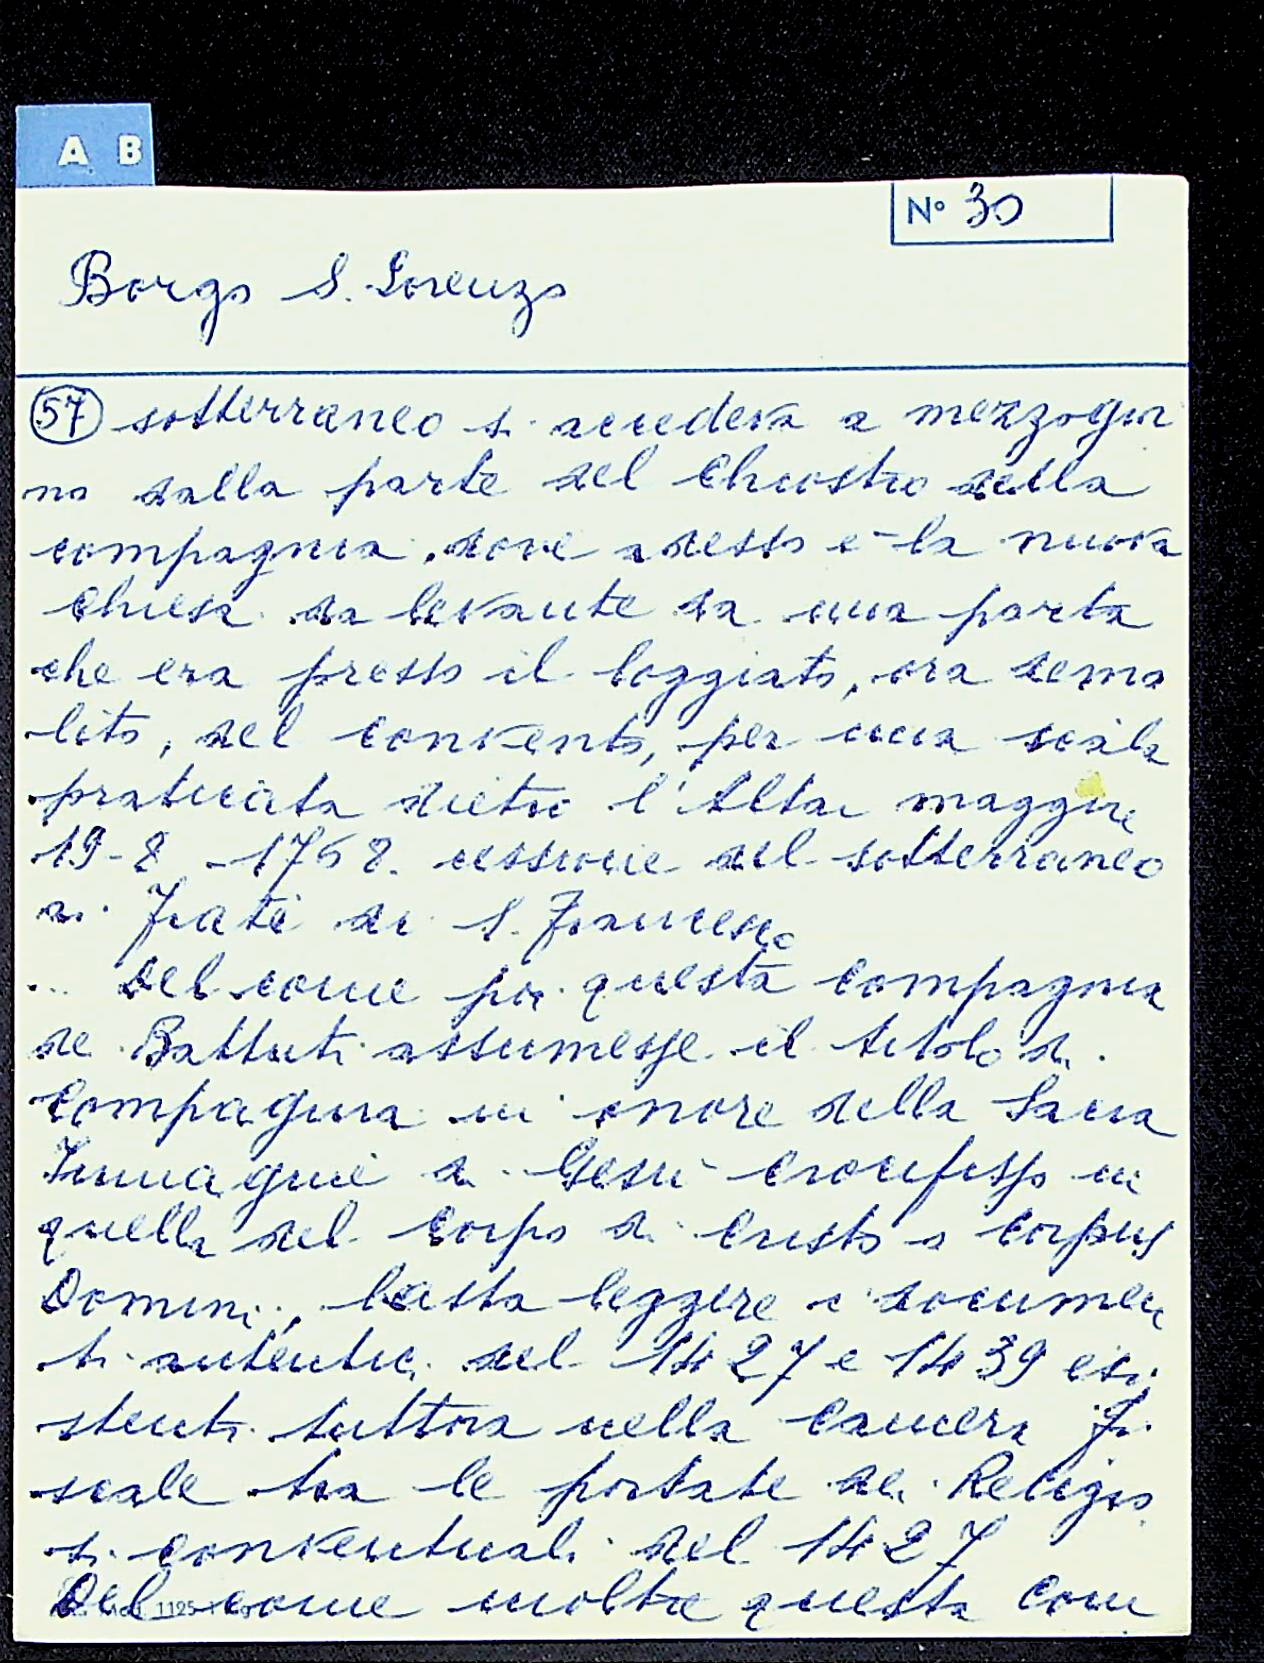 A B
N° 30
Borgo S. Lorenzo
57 sotterraneo si accedeva a mezzogior
no dalla parte del Chiostro della
compagnia, dove adesso e la nuova
Chiesa da levante da una porta
che era presso il loggiato, ora demo
lito, del convento, per una scala
praticata dietro l'Altar maggiore
19-8-1768. cessione del sotterraneo
ai Frati di S. Francesco
.. Del come poi questa compagnia
de Battuti assumesse il titolo di
Compagnia in onore della Sacra
Immagine di Gesù crocifisso in
quella del Corpo di Cristo o Corpus
Domini, basta leggere i documen
ti autentici del 1427 e 1439 esi
stenti tuttora nella Camera Fi
scale tra le portate dei Religio
si conventuali del 1427
Del come inoltre questa com